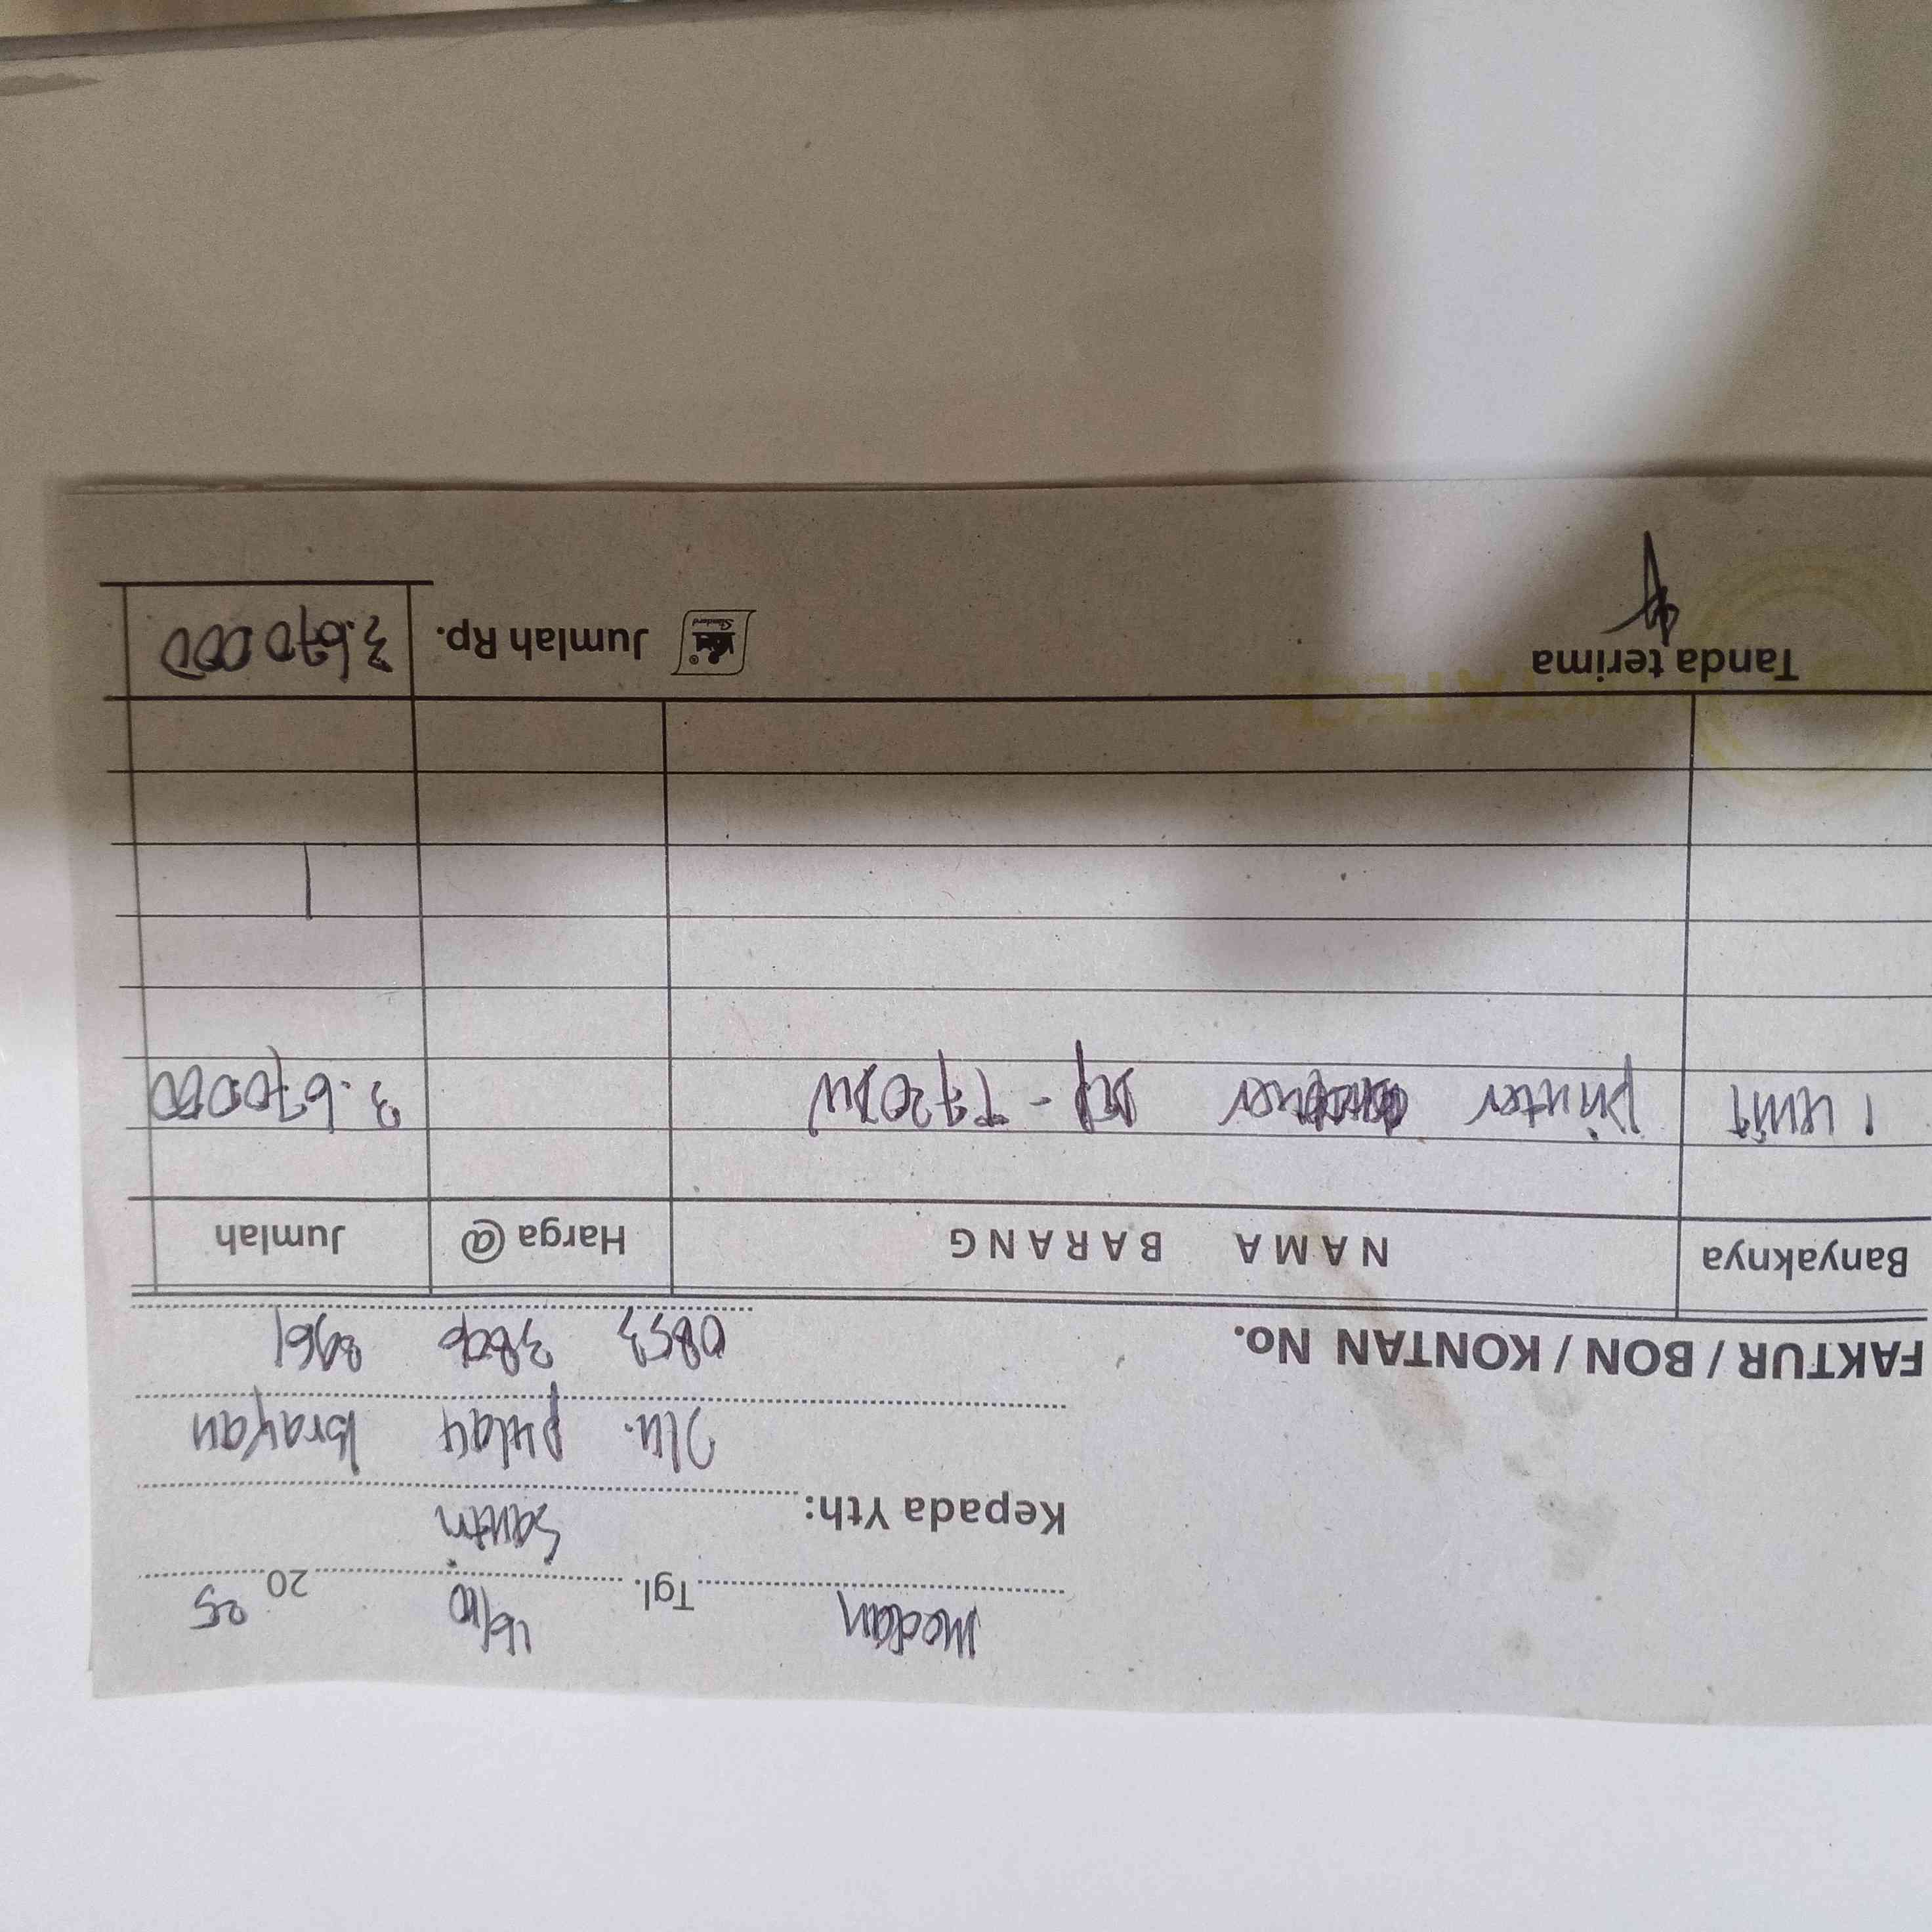 Medan Tgl. 16/10 20 25
Kepada Yth:
Jln. pulau brayan
FAKTUR / BON / KONTAN No. 0853
Banyaknya NAMA BARANG Harga @ Jumlah
1 unit printer DCP - T720DW 3.670000
Tanda terima Jumlah Rp. 3.670 000